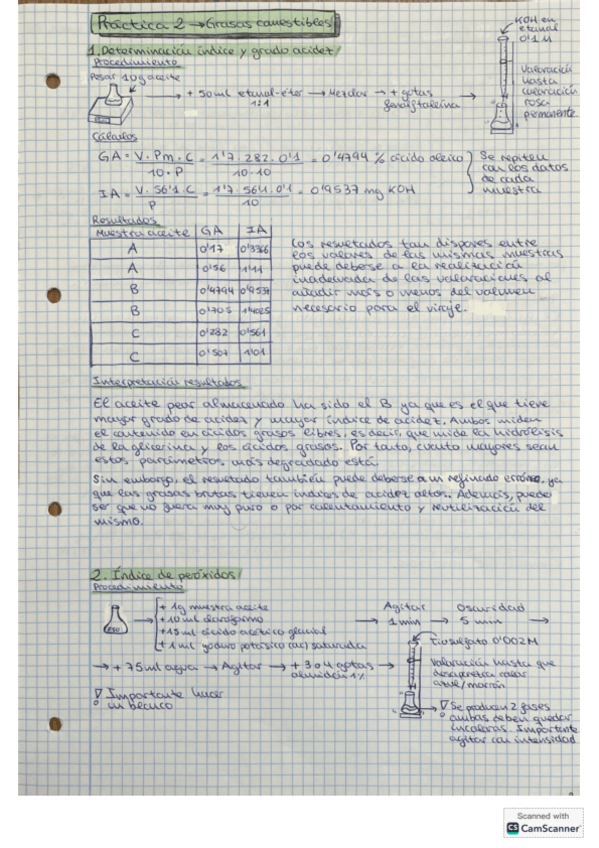 Práctica 2 → Grasas comestibles
1. Determinación índice y grado acidez
Procedimiento
Pesar 10g aceite
→ + 50ml etanol-éter → Mezclar → + gotas fenolftaleína
1:1
KOH en etanol 0'1M
Valoración hasta coloración rosa permanente.
Cálculos
GA = V · Pm · C / 10 · P = 1'7 · 282 · 0'1 / 10 · 10 = 0'4794 % ácido oleico
IA = V · 56'1 · C / P = 1'7 · 56'1 · 0'1 / 10 = 0'9537 mg KOH
Se repiten con los datos de cada muestra
Resultados
Muestra aceite GA IA
A 0'17 0'3366
A 0'56 1'11
B 0'4794 0'9537
B 0'705 1'4025
C 0'282 0'561
C 0'507 1'01
Los resultados tan dispares entre
los valores de las mismas muestras
puede deberse a la realización
inadecuada de las valoraciones al
añadir más o menos del volumen
necesario para el viraje.
Interpretación resultados
El aceite peor almacenado ha sido el B ya que es el que tiene
mayor grado de acidez y mayor índice de acidez. Ambos miden
el contenido en ácidos grasos libres, es decir, que mide la hidrólisis
de la glicerina y los ácidos grasos. Por tanto, cuanto mayores sean
estos parámetros más degradado está.
Sin embargo, el resultado también puede deberse a un refinado erróneo, ya
que las grasas brutas tienen índices de acidez altos. Además, puede
ser que no fuera muy puro o por calentamiento y reutilización del
mismo.
2. Índice de peróxidos
Procedimiento
+ 1g muestra aceite
+ 10ml cloroformo
+ 15ml ácido acético glacial
+ 1ml yoduro potásico (ac) saturada
Agitar → 1 min → Oscuridad 5 min →
→ + 75ml agua → Agitar → + 3 o 4 gotas almidón 1%
Tiosulfato 0'002M
Valoración hasta que
desaparezca color
azul/marrón
Importante hacer
un blanco
Se producen 2 fases
ambas deben quedar
incoloras. Importante
agitar con intensidad
Scanned with
CS CamScanner